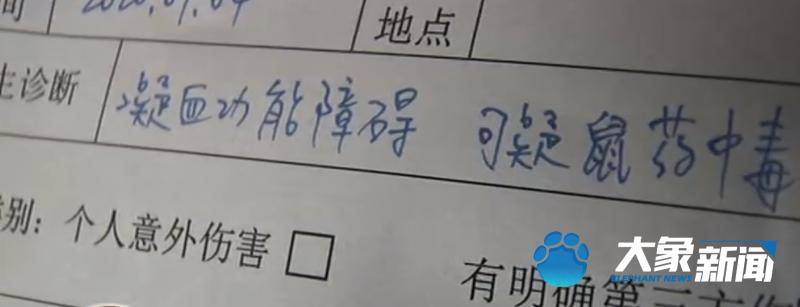 间 2020.09.04 地点
生诊断 凝血功能障碍 可疑鼠药中毒
类别: 个人意外伤害 □ 有明确第三方
大象新闻
ELEPHANT NEWS